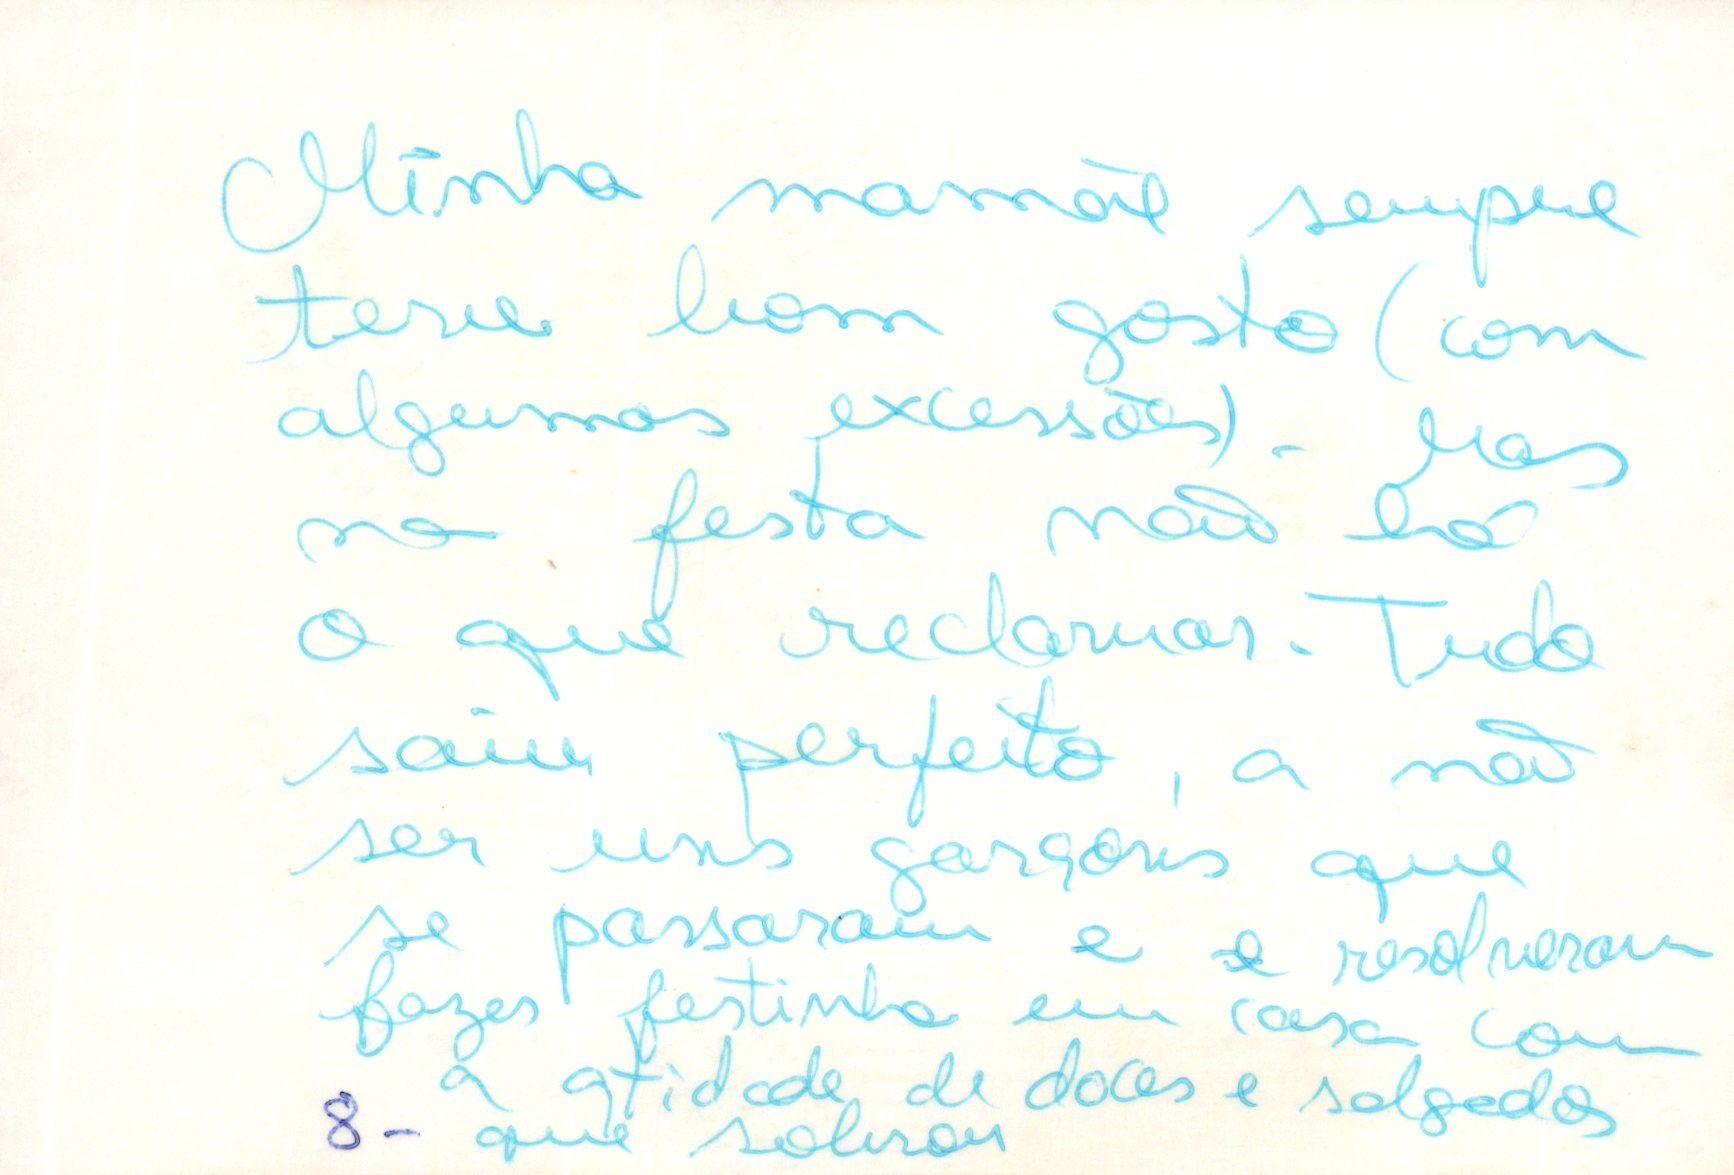 Minha mamãe sempre
teve bom gosto (com
algumas excessões). Mas
na festa não há
o que reclamar. Tudo
saiu perfeito, a não
ser uns garçons que
se passaram e e resolveram
fazer festinha em casa com
a qtidade de doces e salgados
8- que sobrou